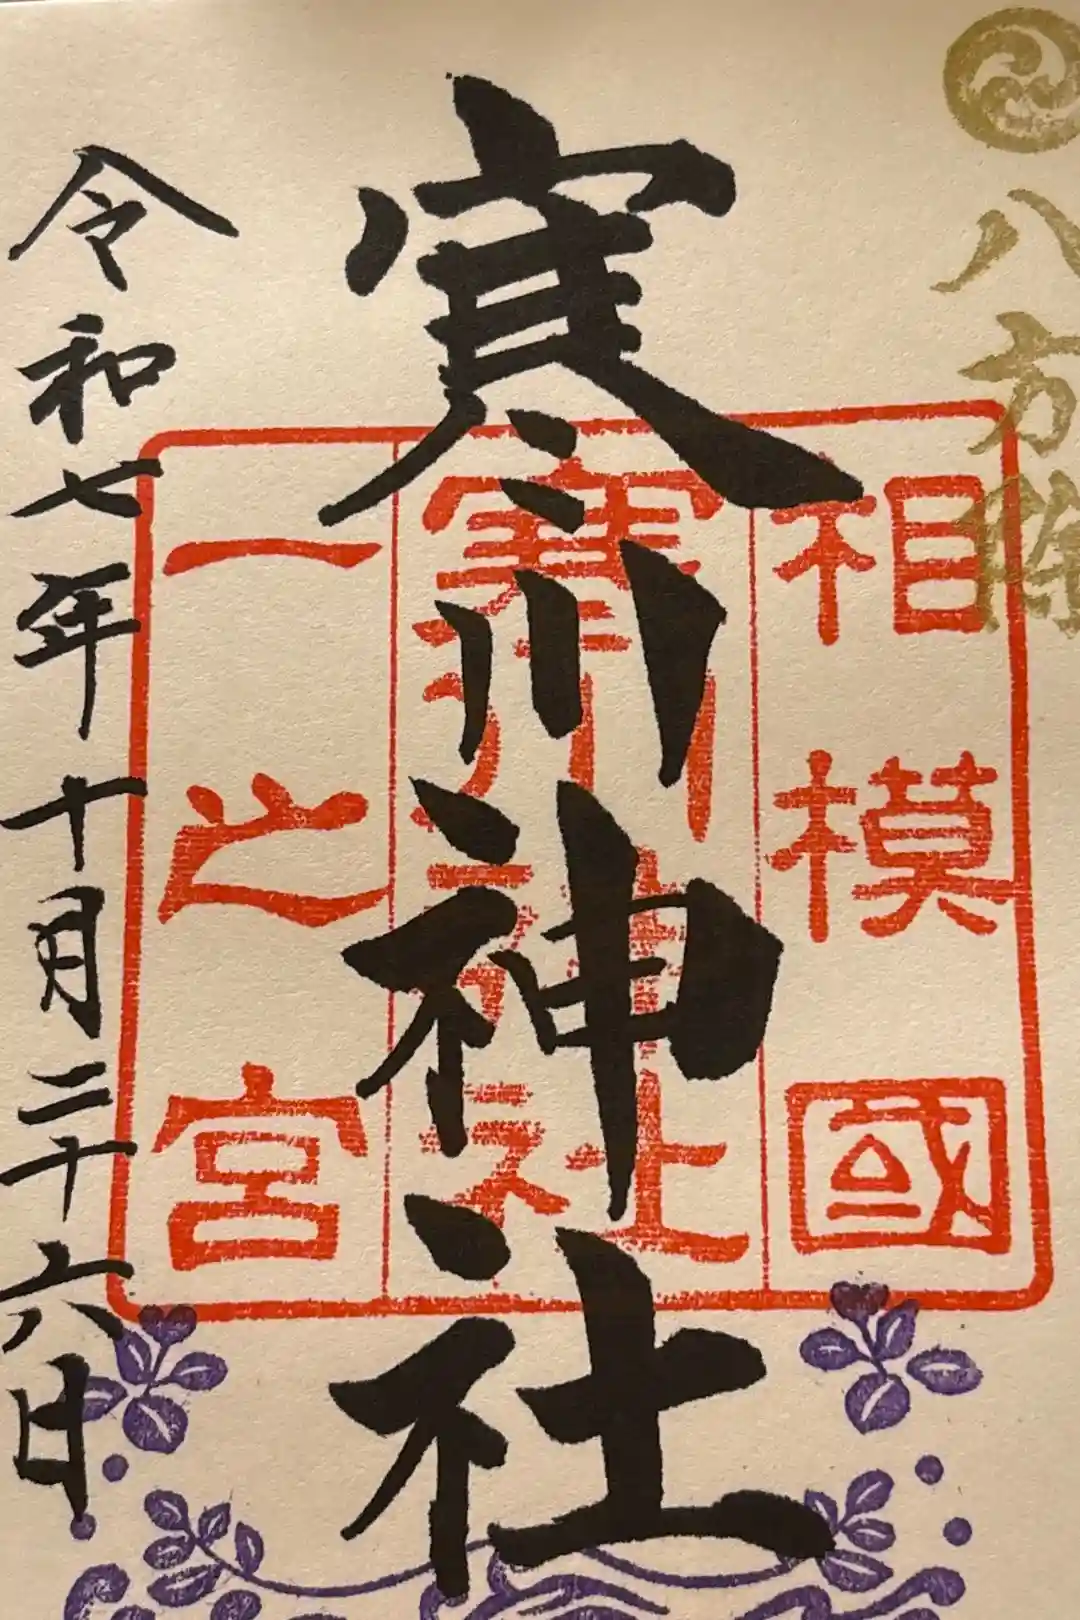 八方除
相模國
寒川神社
寒川神社
一之宮
令和七年十月二十六日